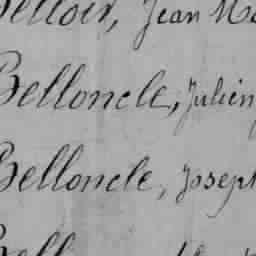 Belloir, Jean Ma
Belloncle, Julien
Belloncle, Joseph
Bell